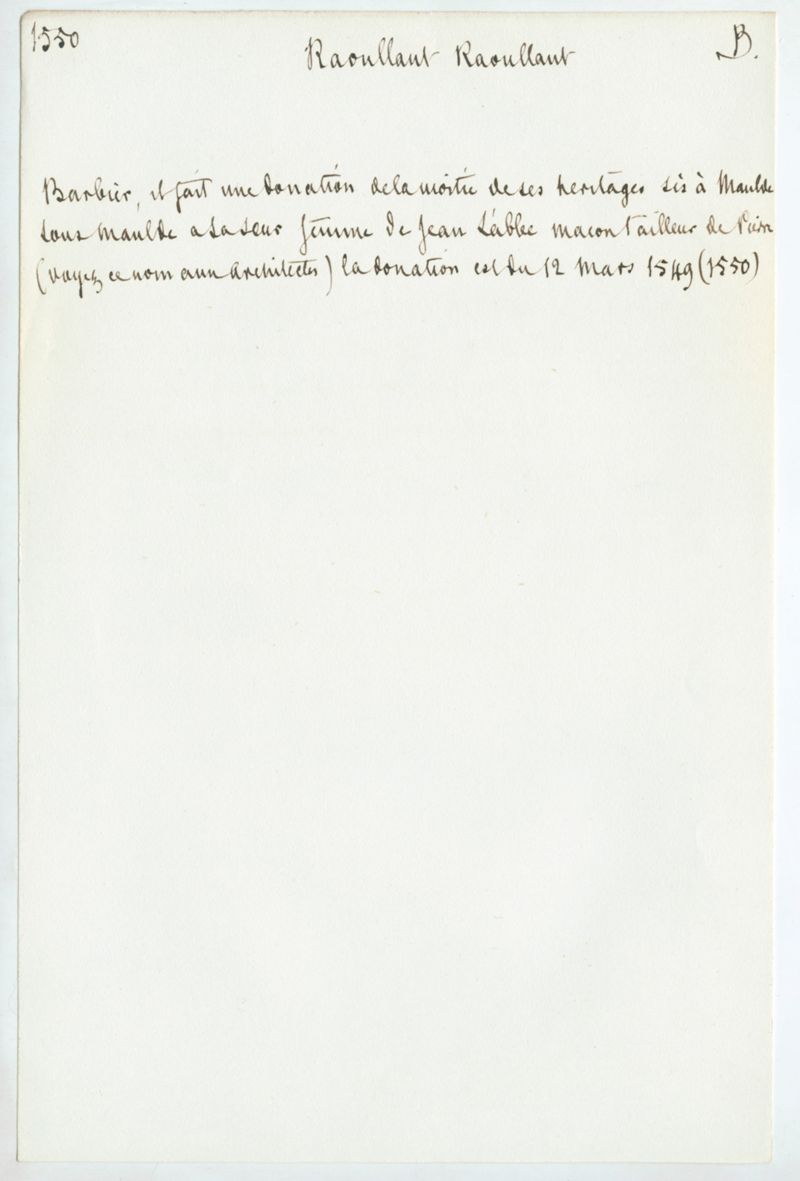 1550
Raoullant Raoullant
B.
Barbier, il fait une donation de la moitié de ses heritages sis à Maulde
sous Maulde a sa seur femme de Jean Labbe macon tailleur de Pierre
(voyez ce nom aux Architectes) la donation est du 12 Mars 1549 (1550)